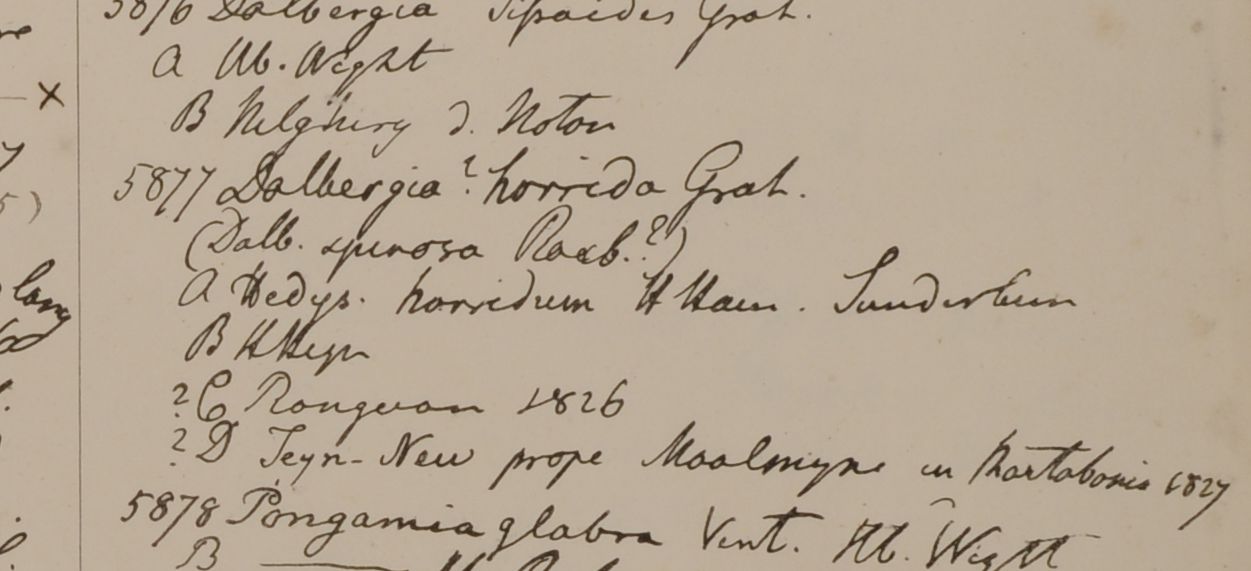 5876 Dalbergia Sissoides Grah.
A Hb. Wight
B Nelghery D. Noton
5877 Dalbergia? horrida Grah.
(Dalb. spinosa Roxb.?)
A Hedys. horridum H Ham. Sunderbun
B H Heyn
? C Rangoon 1826
? D Teyn-New prope Moolmyne in Martabania 1827
5878 Pongamia glabra Vent. Hb. Wight
B